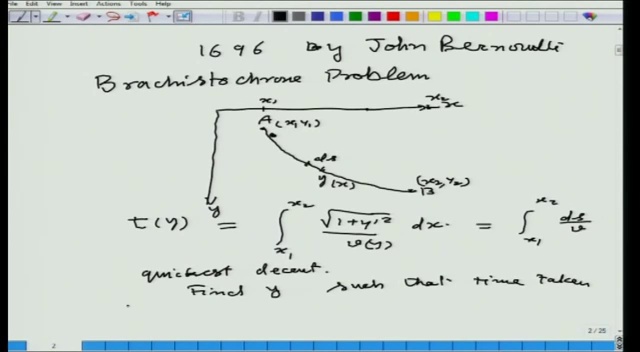 Edit View Insert Actions Tools Help
1696 By John Bernoulli
Brachistochrone Problem
x₁ x₂ x
A (x₁, y₁)
ds
y(x) (x₂, y₂)
B
y
t(y) = ∫_{x₁}^{x₂} √(1+y'²) / v(y) dx. = ∫_{x₁}^{x₂} ds/v
quickest decent.
Find y such that time taken
2 2/25